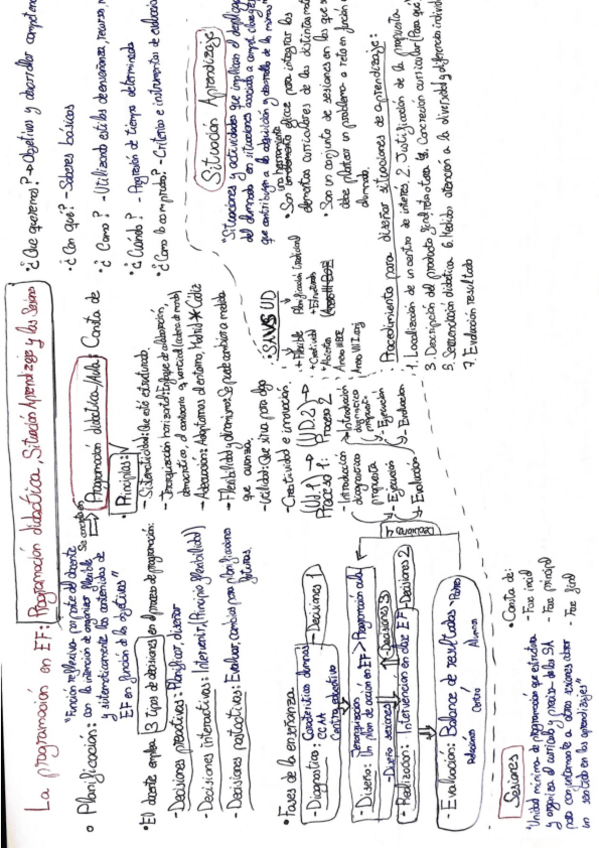 La programación en EF: Programación didáctica, Situación Aprendizaje y las Sesiones
o Planificación: "Función reflexiva por parte del docente
con la intención de organizar flexible
y sistemáticamente los contenidos de
EF en función de los objetivos"
Se concreta en
⇒ Programación didáctica/Aula: Consta de
•El docente emplea 3 tipos de decisiones en el proceso de programación:
- Decisiones preactivas: Planificar, diseñar
- Decisiones interactivas: Intervenir (Principio flexibilidad)
- Decisiones postactivas: Evaluar, cambios para planificaciones futuras.
• Fases de la enseñanza
- Diagnostico: Características alumnos
CCAA
Centro educativo
- Decisiones 1
- Diseño: Un plan de acción en EF > Programación aula
- Diseño sesiones
- Decisiones 3
- Realización: Intervención en clase EF - Decisiones 2
- Evaluación: Balance de resultados
Alumno
Centro
Decisiones 4
Sesiones
"Unidad mínima de programación que estructura
y organiza el currículo y precisa de las SA
para conjuntamente a otras sesiones cobrar
un sentido en los aprendizajes"
• Consta de:
- Fase inicial
- Fase principal
- Fase final
• Principios:
- Sistematicidad: Que esté estructurado
- Adecuación: Adaptarnos al entorno, Madrid * Cádiz
- Flexibilidad y dinamismo: Se puede cambiar a medida
que avanza.
- Utilidad: Que sirva para algo
- Creatividad e innovación.
(Ud.1) → (UD.2) →
Proceso 1: Proceso 2
- Introducción
diagnostico
propuesta
- Ejecución
- Evaluación
- Introducción
diagnostico
propuesta
- Ejecución
- Evaluación
•¿Que queremos? → Objetivos y desarrollar competen
•¿Con qué? - Saberes básicos
•¿Como? - Utilizando estilos de enseñanza, recursos, m
•¿Cuándo? - Progresión de tiempo determinada
•¿Como lo compruebo? - Criterios e instrumentos de evaluación
• SA VS UD
+ Flexible
+ Creatividad
+ Abiertas
Planificación (tradicional)
+ Estructurada
Situación Aprendizaje
"Situaciones y actividades que implican el despliegue
del alumnado en situaciones asociadas a compet. clave y
que contribuyen a la adquisición y desarrollo de las mismas"
• Son una herramienta eficaz para integrar los
elementos curriculares de las distintas mat
• Son un conjunto de sesiones en las que se
debe plantear un problema o reto en función d
alumnado.
Procedimientos para diseñar situaciones de aprendizaje:
1. Localización de un centro de interés, 2. Justificación de la propuesta,
3. Descripción del producto final, reto o tarea, 4. Concreción curricular (Para que,
5. Secuenciación didactica 6. Medidas atención a la diversidad y diferencias individ
7. Evaluación resultado